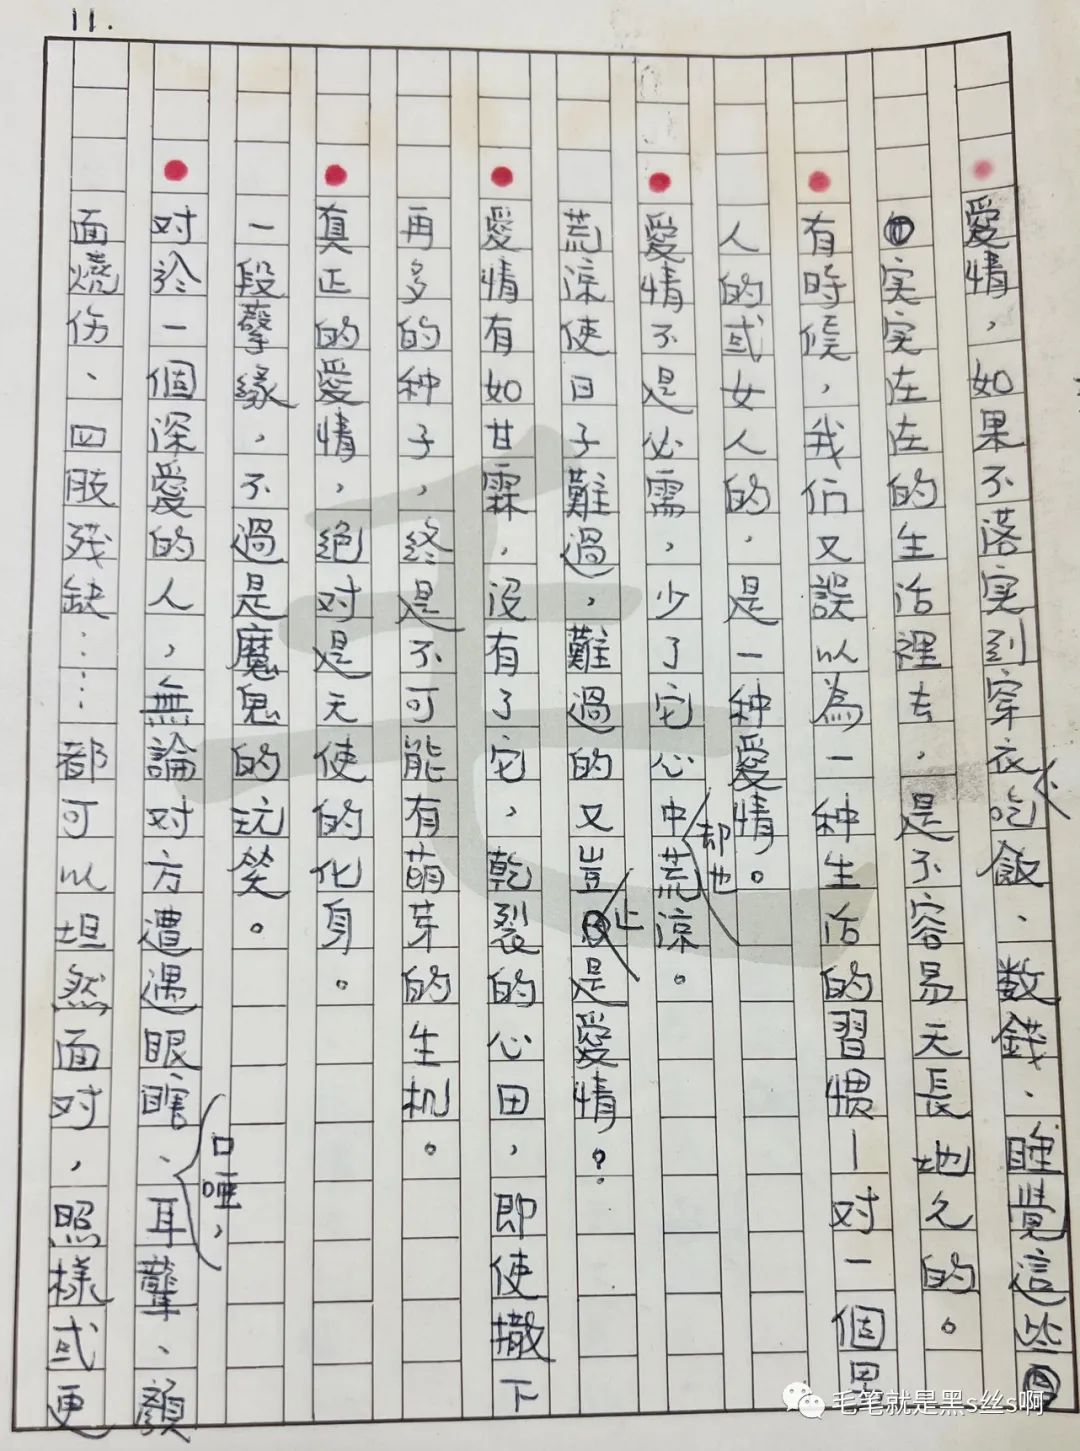 11.
愛情，如果不落实到穿衣、吃飯、数錢、睡覺這些
实实在在的生活裡去，是不容易天長地久的。
有時候，我们又誤以為一种生活的習惯—对一個男
人的或女人的，是一种愛情。
愛情不是必需，少了它心中却也荒凉。
荒凉使日子難過，難過的又豈止是愛情？
愛情有如甘霖，没有了它，乾裂的心田，即使撒下
再多的种子，终是不可能有萌芽的生机。
真正的愛情，绝对是天使的化身。
一段孽緣，不過是魔鬼的玩笑。
对於一個深愛的人，無論对方遭遇眼瞎、口啞，耳聾、顏
面燒伤、四肢残缺……都可以坦然面对，照樣或更
毛
毛笔就是黑s丝s啊